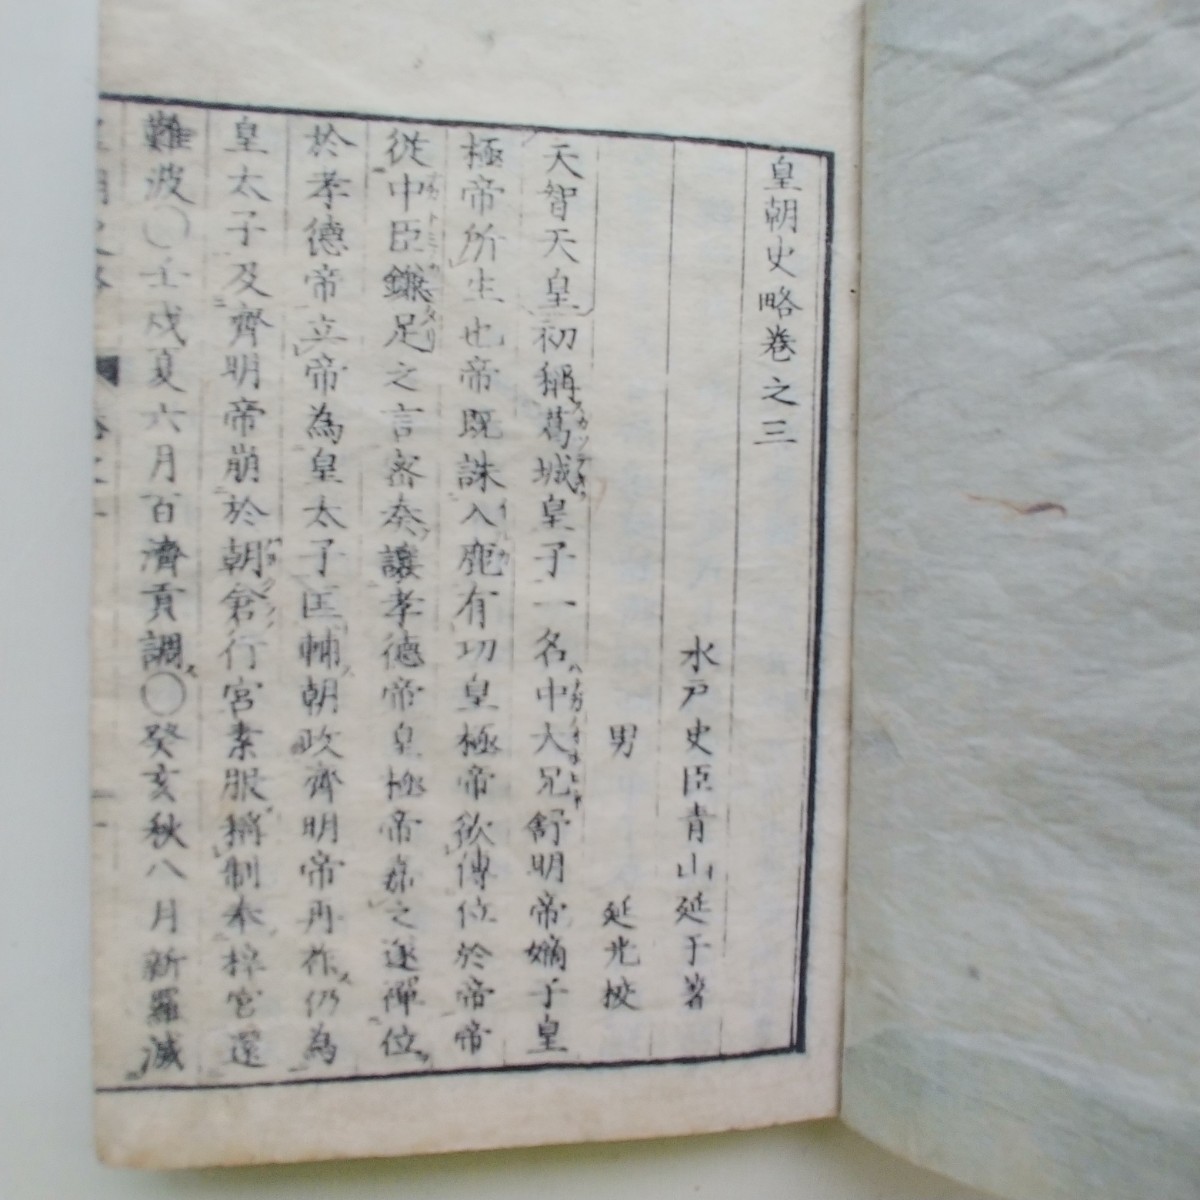 皇朝史略卷之三
水戸史臣青山延于著
男 延光挍
天智天皇初稱葛城皇子一名中大兄舒明帝嫡子皇
極帝所生也帝既誅入鹿有功皇極帝欲傳位於帝帝
從中臣鎌足之言密奏讓孝德帝皇極帝嘉之遂禪位
於孝德帝立帝為皇太子匡輔朝政齊明帝再祚仍為
皇太子及齊明帝崩於朝倉行宮素服稱制奉梓宮還
難波〇壬戌夏六月百濟貢調〇癸亥秋八月新羅滅